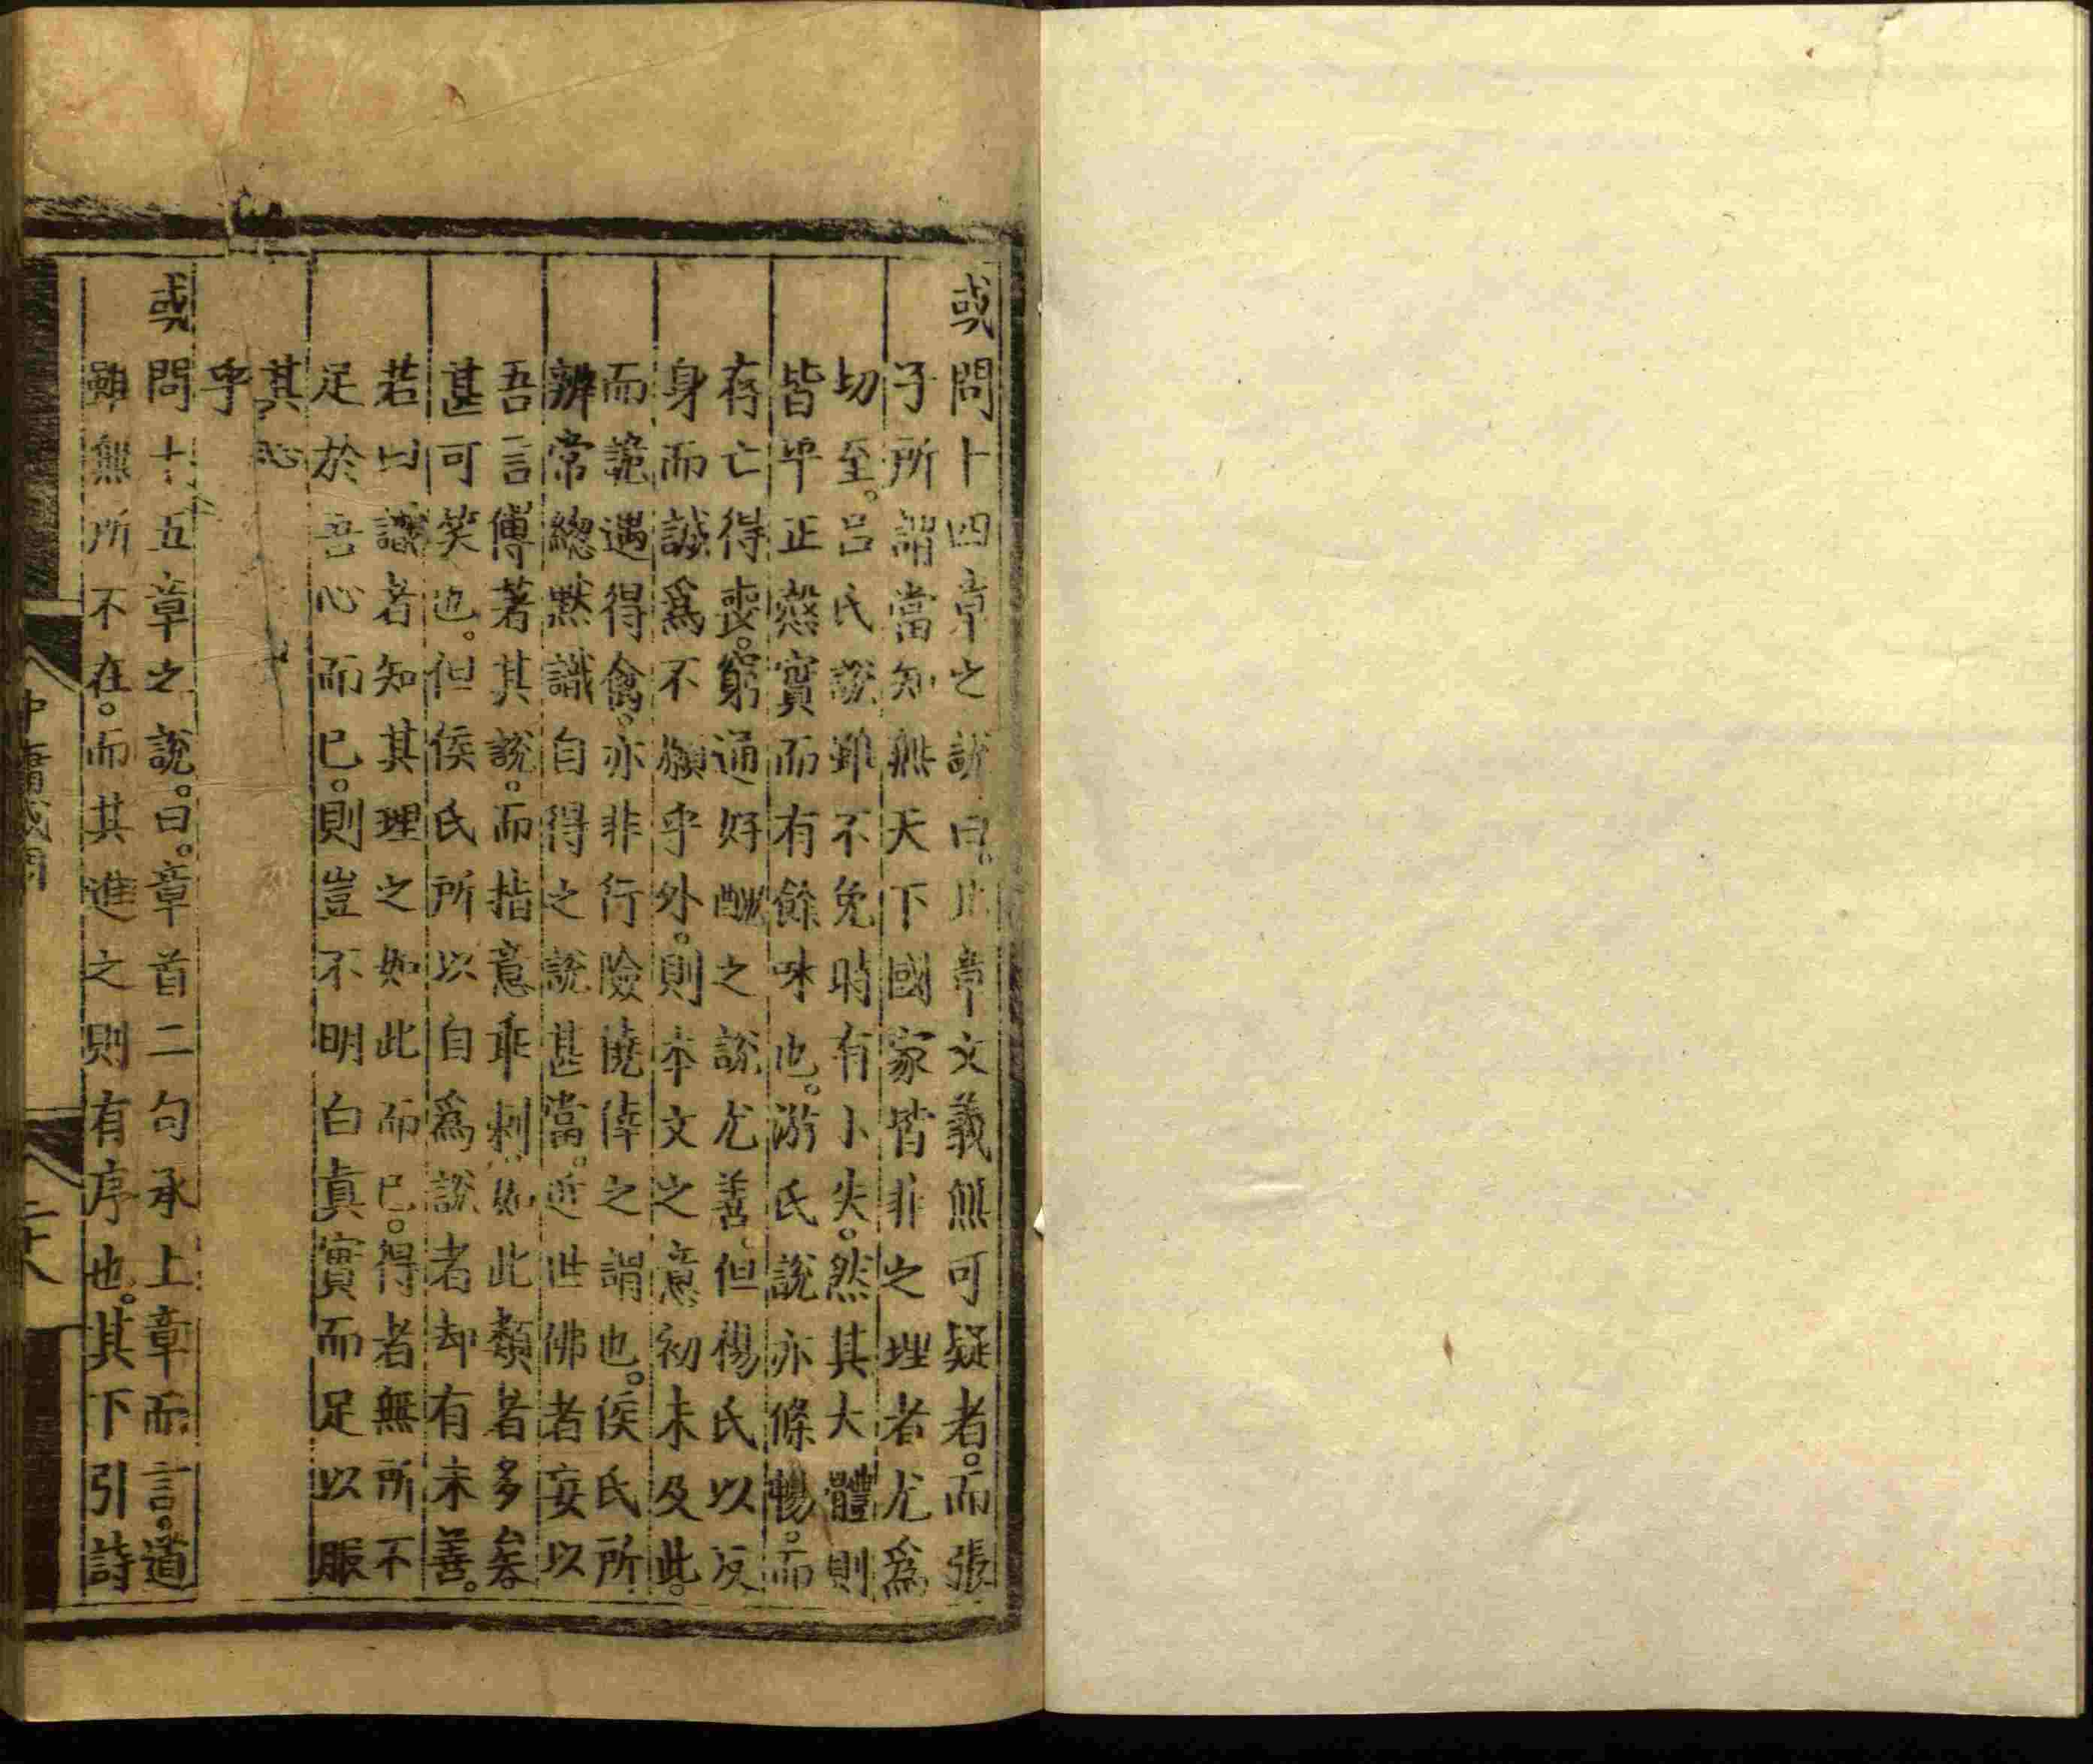 或問十四章之說曰。此章文義無可疑者。而張
子所謂當知無天下國家皆非之理者尤爲
切至。呂氏說雖不免時有小失。然其大體則
皆平正慤實而有餘味也。游氏說亦條暢。而
存亡得喪。窮通好醜之說尤善。但楊氏以反
身而誠爲不願乎外。則本文之意初未及此。
而詭遇得禽。亦非行險僥倖之謂也。侯氏所
辨常緫默識自得之說甚當。近世佛者妄以
吾言傅著其說。而指意乖刺。如此類者多矣。
甚可笑也。但侯氏所以自爲說者却有未善。
若曰識者知其理之如此而已。得者無所不
足於吾心而已。則豈不明白真實而足以服
其心
乎
或問十五章之說。曰。章首二句承上章而言。道
雖無所不在。而其進之則有序也。其下引詩
中庸或問
二十八